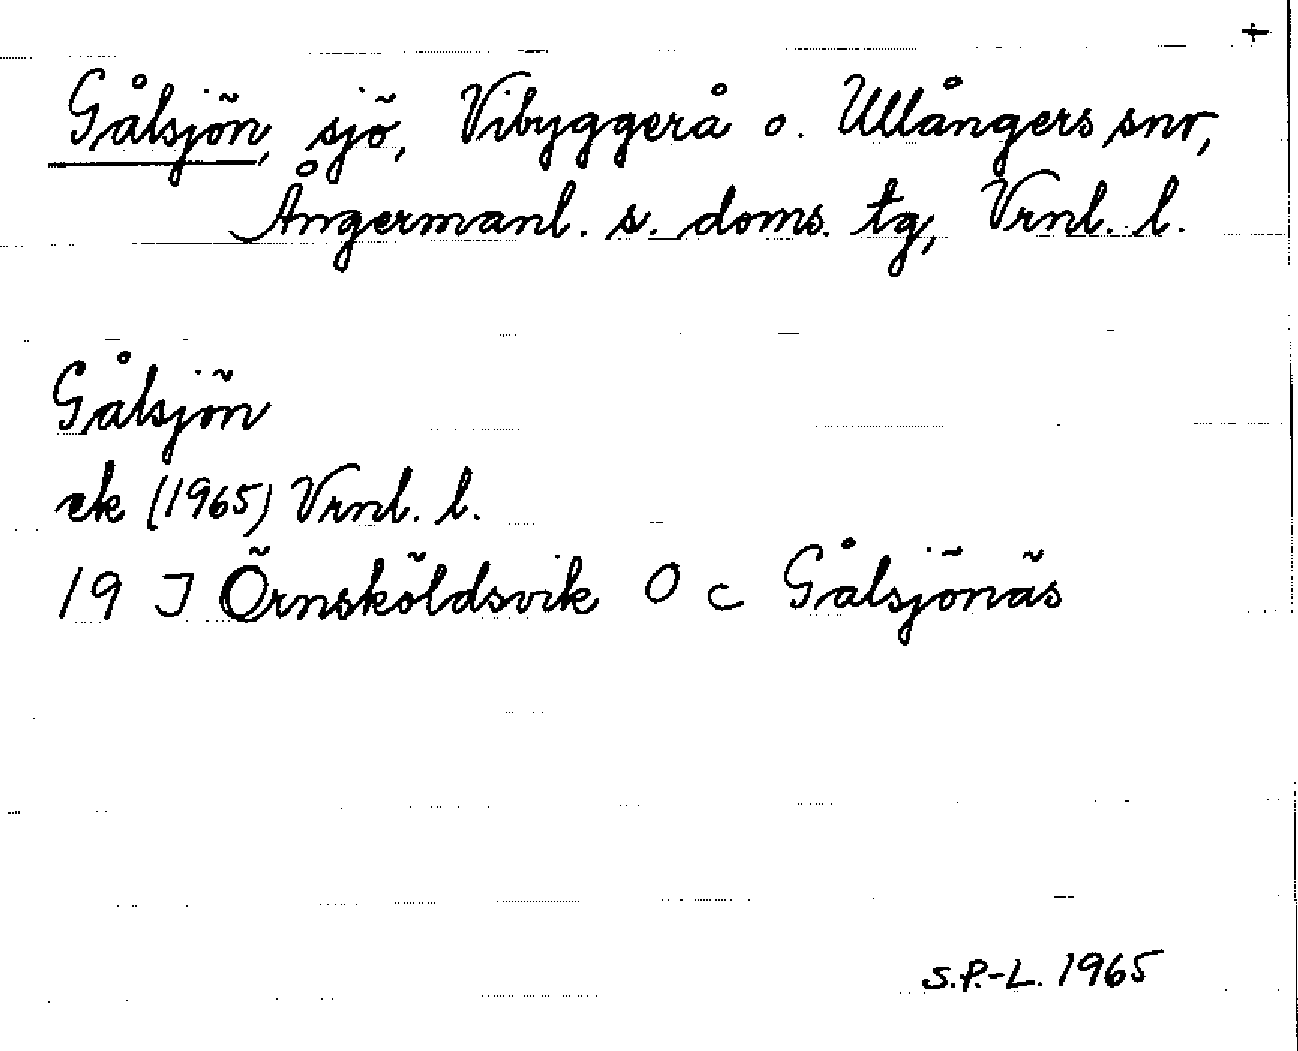 +
Gålsjön, sjö, Vibyggerå o. Ullångers snr,
Ångermanl. s. doms. tg, Vrnl. l.
Gålsjön
ek (1965) Vrnl. l.
19 J Örnsköldsvik O c Gålsjönäs
S.P.-L. 1965